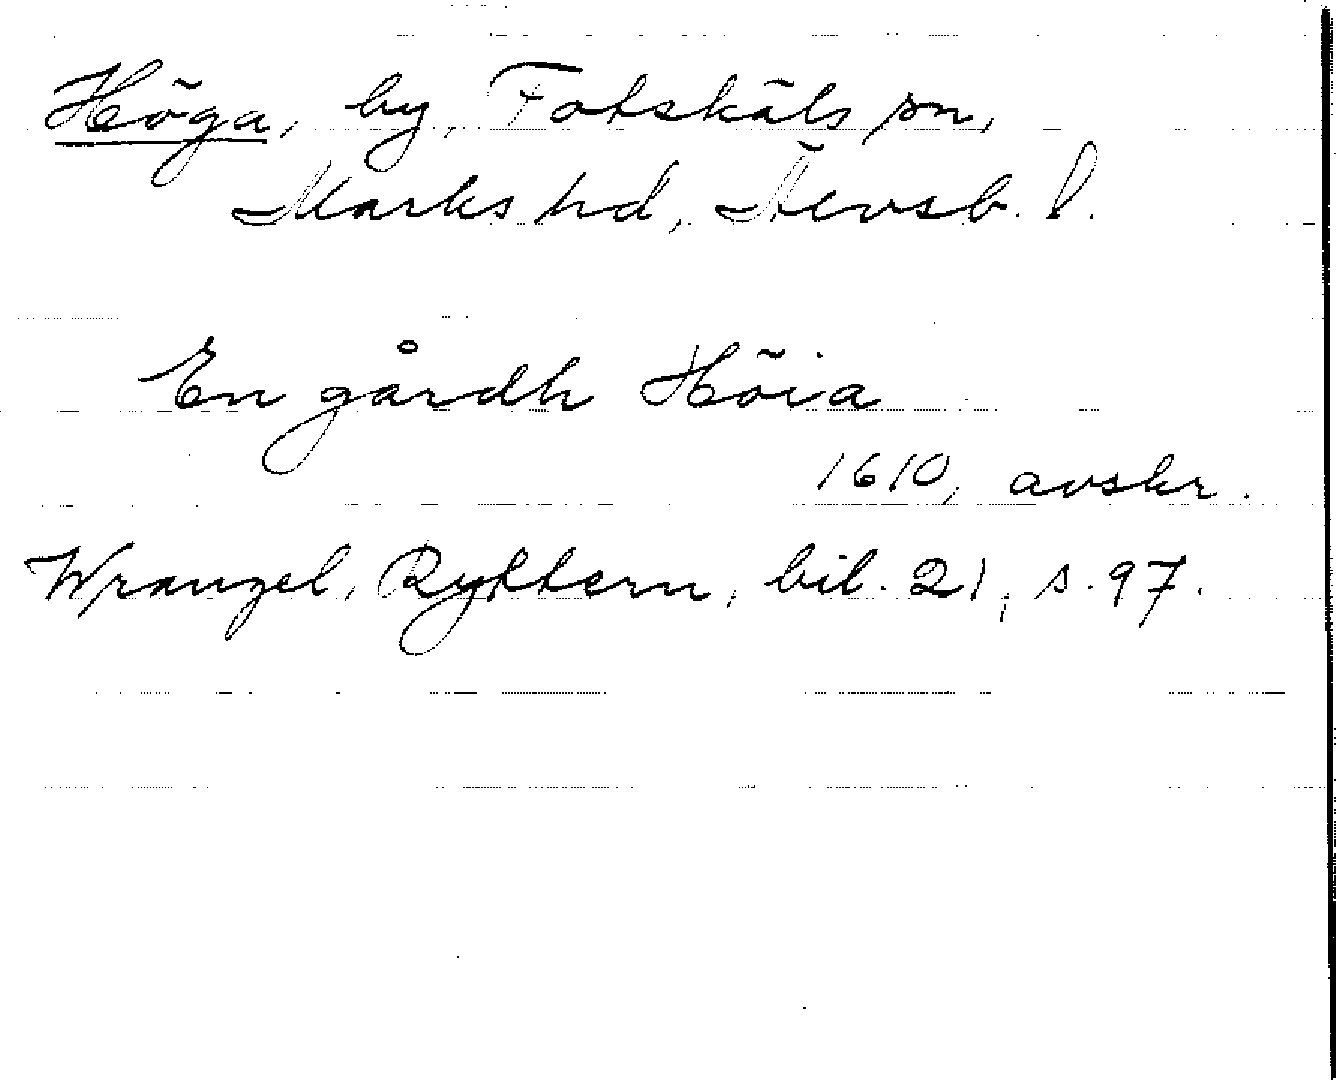 Höga, by, Fotskäls sn,
Marks hd, Älvsb. l.
En gårdh Höia
1610, avskr.
Wrangel, Ryttern, bil. 21, s. 97.